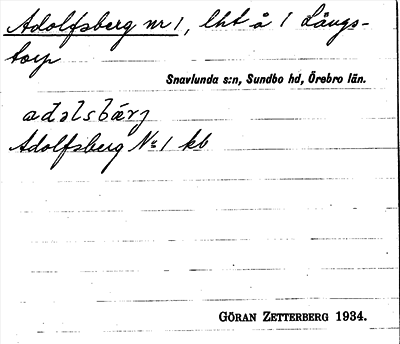 Adolfsberg nr 1, lht å 1 Långs-
torp
Snavlunda s:n, Sundbo hd, Örebro län.
adəlsbárj
Adolfsberg No 1 kb
GÖRAN ZETTERBERG 1934.